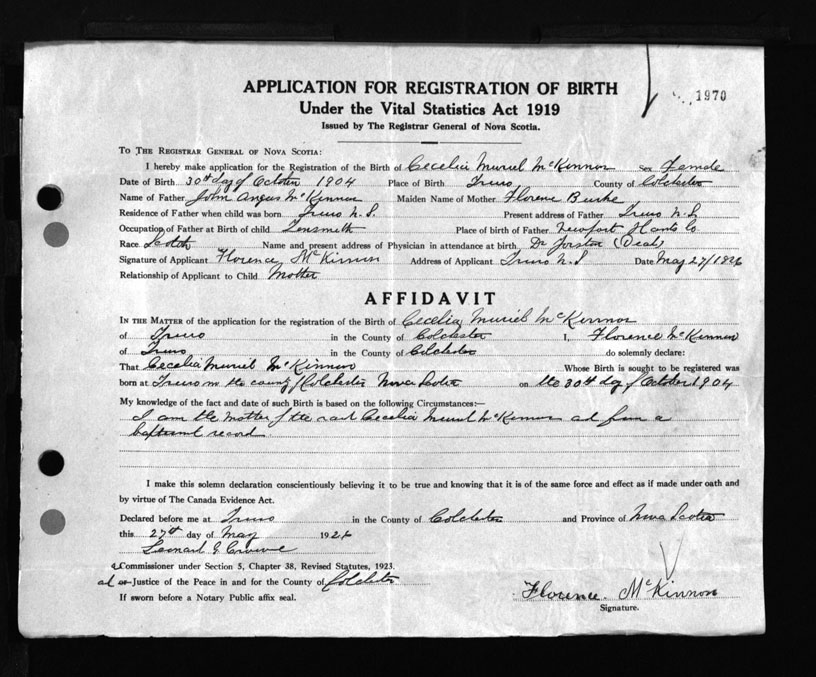 1970
APPLICATION FOR REGISTRATION OF BIRTH
Under the Vital Statistics Act 1919
Issued by The Registrar General of Nova Scotia.
TO THE REGISTRAR GENERAL OF NOVA SCOTIA:
I hereby make application for the Registration of the Birth of Cecelia Muriel McKinnon a Female
Date of Birth 30th day of October 1904 Place of Birth Truro County of Colchester
Name of Father John Angus McKinnon Maiden Name of Mother Florence Burke
Residence of Father when child was born Truro N.S. Present address of Father Truro N.S.
Occupation of Father at Birth of child Tinsmith Place of birth of Father Newport Hants Co.
Race Scotch Name and present address of Physician in attendance at birth Dr (Dead)
Signature of Applicant Florence McKinnon Address of Applicant Truro N.S Date May 27/1926
Relationship of Applicant to Child Mother
AFFIDAVIT
IN THE MATTER of the application for the registration of the Birth of Cecelia Muriel McKinnon
of Truro in the County of Colchester I, Florence McKinnon
of Truro in the County of Colchester do solemnly declare:
That Cecelia Muriel McKinnon Whose Birth is sought to be registered was
born at Truro in the county of Colchester Nova Scotia on the 30th day of October 1904
My knowledge of the fact and date of such Birth is based on the following Circumstances:—
I am the Mother of the said Cecelia Muriel McKinnon and from a
baptismal record.
I make this solemn declaration conscientiously believing it to be true and knowing that it is of the same force and effect as if made under oath and
by virtue of The Canada Evidence Act.
Declared before me at Truro in the County of Colchester and Province of Nova Scotia
this 27th day of May 1926
Leonard G Crowe
a Commissioner under Section 5, Chapter 38, Revised Statutes, 1923.
or Justice of the Peace in and for the County of Colchester
If sworn before a Notary Public affix seal.
Florence McKinnon
Signature.